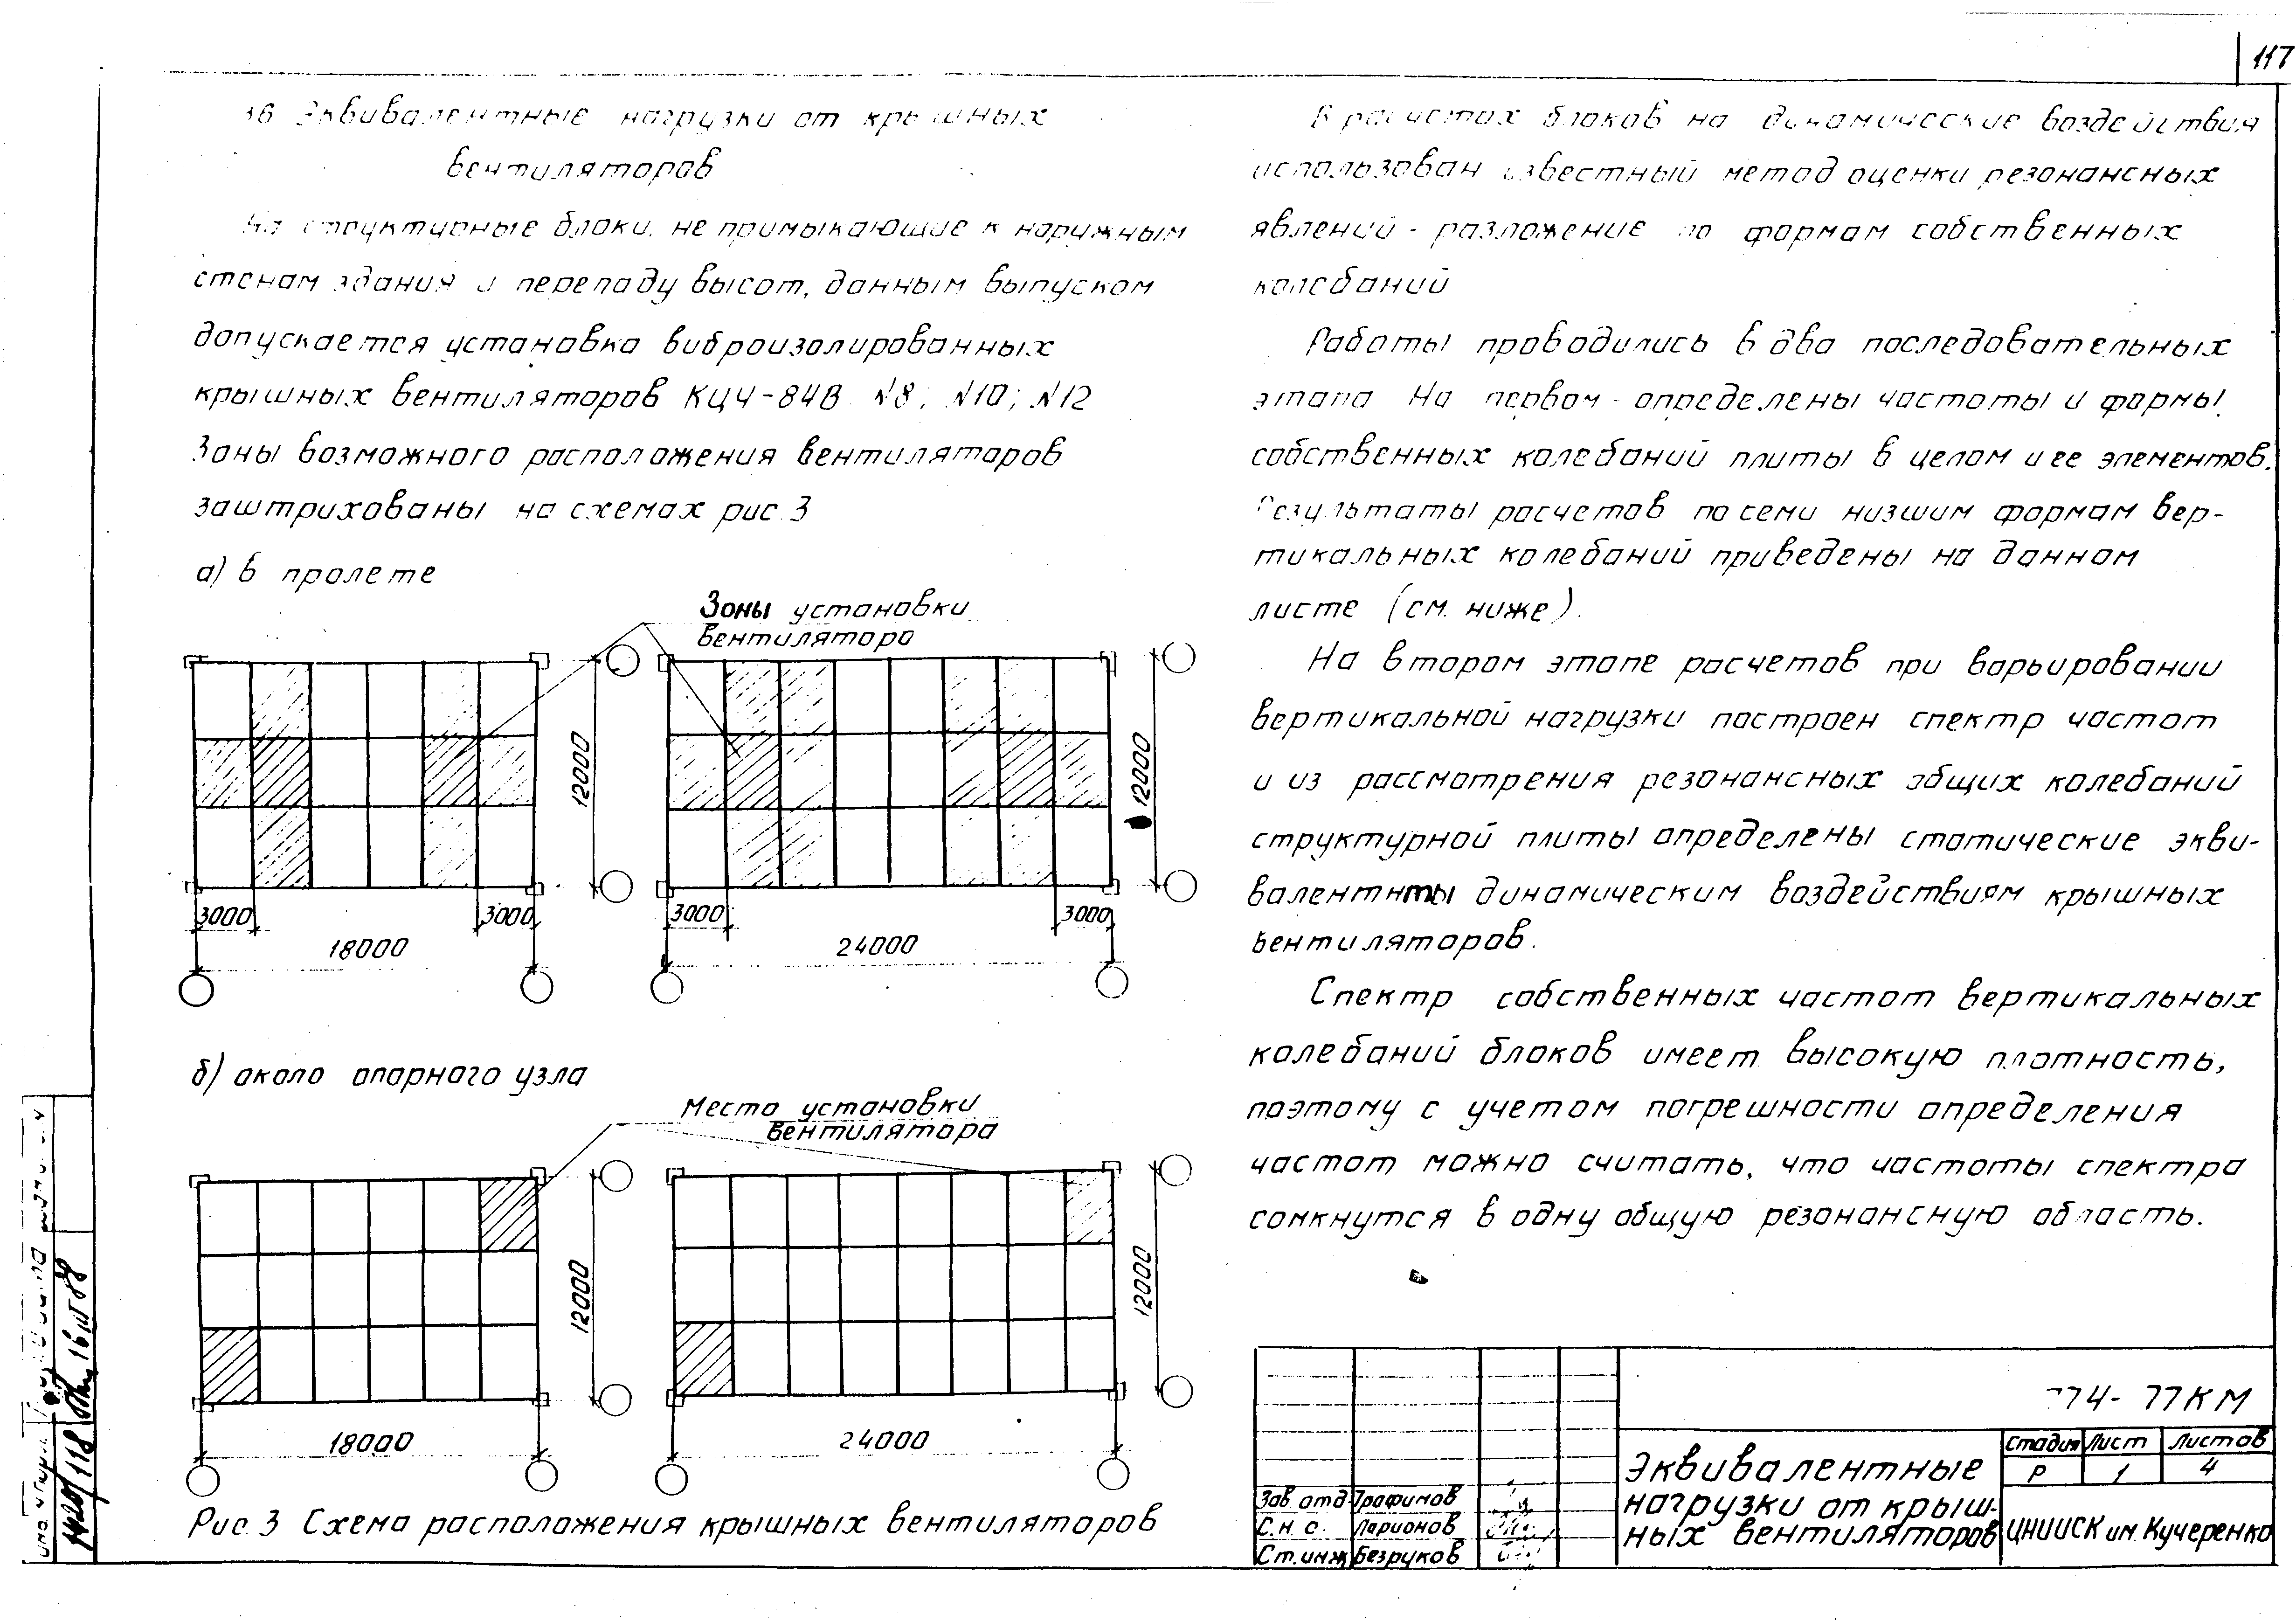 117
36 Эквивалентные нагрузки от крышных
вентиляторов
На структурные блоки, не примыкающие к наружным
стенам здания и перепаду высот, данным выпуском
допускается установка виброизолированных
крышных вентиляторов КЦЧ-84В №8; №10; №12
Зоны возможного расположения вентиляторов
заштрихованы на схемах рис. 3
а) в пролете
Зоны установки
вентилятора
12000
12000
3000
3000
18000
3000
3000
24000
б) около опорного узла
Место установки
вентилятора
12000
12000
18000
24000
Рис. 3 Схема расположения крышных вентиляторов
В расчетах блоков на динамические воздействия
использован известный метод оценки резонансных
явлений - разложение по формам собственных
колебаний
Работы проводились в два последовательных
этапа На первом - определены частоты и формы
собственных колебаний плиты в целом и ее элементов.
Результаты расчетов по семи низшим формам вер-
тикальных колебаний приведены на данном
листе (см. ниже).
На втором этапе расчетов при варьировании
вертикальной нагрузки построен спектр частот
и из рассмотрения резонансных общих колебаний
структурной плиты определены статические экви-
валентнты динамическим воздействиям крышных
вентиляторов.
Спектр собственных частот вертикальных
колебаний блоков имеет высокую плотность,
поэтому с учетом погрешности определения
частот можно считать, что частоты спектра
сомкнутся в одну общую резонансную область.
74-77КМ
Эквивалентные
нагрузки от крыш-
ных вентиляторов
Стадия Лист Листов
Р 1 4
ЦНИИСК им. Кучеренко
Зав. отд. Трофимов
С.н.с. Ларионов
Ст. инж Безруков